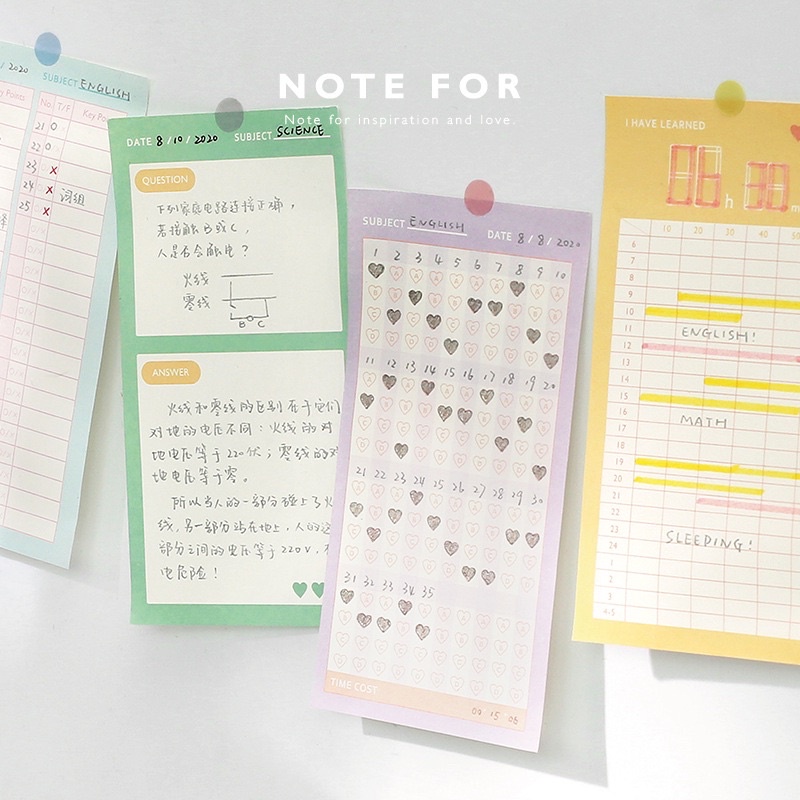 NOTE FOR
Note for inspiration and love.
2020 SUBJECT ENGLISH
No. T/F Key Po
21 O
22 O
23 x
24 x 词组
25 x
DATE 8 / 10 / 2020 SUBJECT SCIENCE
QUESTION
下列家庭电路连接正确,
若接触B或C,
人是否会触电?
火线
零线
B C
ANSWER
火线和零线的区别在于它们
对地的电压不同:火线的对
地电压等于220伏;零线的对
地电压等于零。
所以当人的一部分碰上了火
线,另一部分站在地上,人的这
部分之间的电压等于220V,
电危险!
SUBJECT ENGLISH DATE 8 / 8 / 2020
1 2 3 4 5 6 7 8 9 10
11 12 13 14 15 16 17 18 19 20
21 22 23 24 25 26 27 28 29 30
31 32 33 34 35
TIME COST
00 15 06
I HAVE LEARNED
06 h 30 m
10 20 30 40 50
6
7
8
9
10
11 ENGLISH!
12
13
14
15
16 MATH
17
18
19
20
21
22
23 SLEEPING!
24
1
2
3
4-5